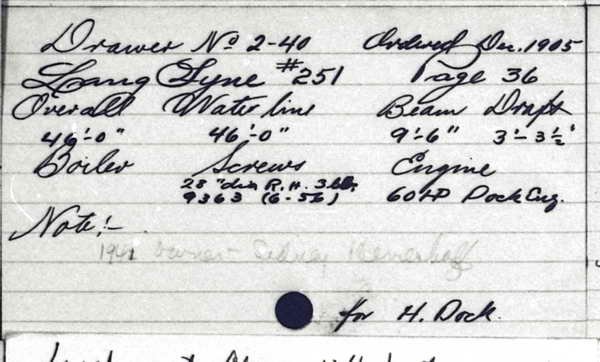 Drawer No 2-40 Ordered Dec. 1905
Lang Syne #251 Page 36
Overall Water line Beam Draft
46'-0" 46'-0" 9'-6" 3'-3½"
Boiler Screws Engine
28" dia R.H. 3 bl.
9363 (6-56) 60 HP Dock Eng.
Note:-
owner Sidney
for H. Dock.